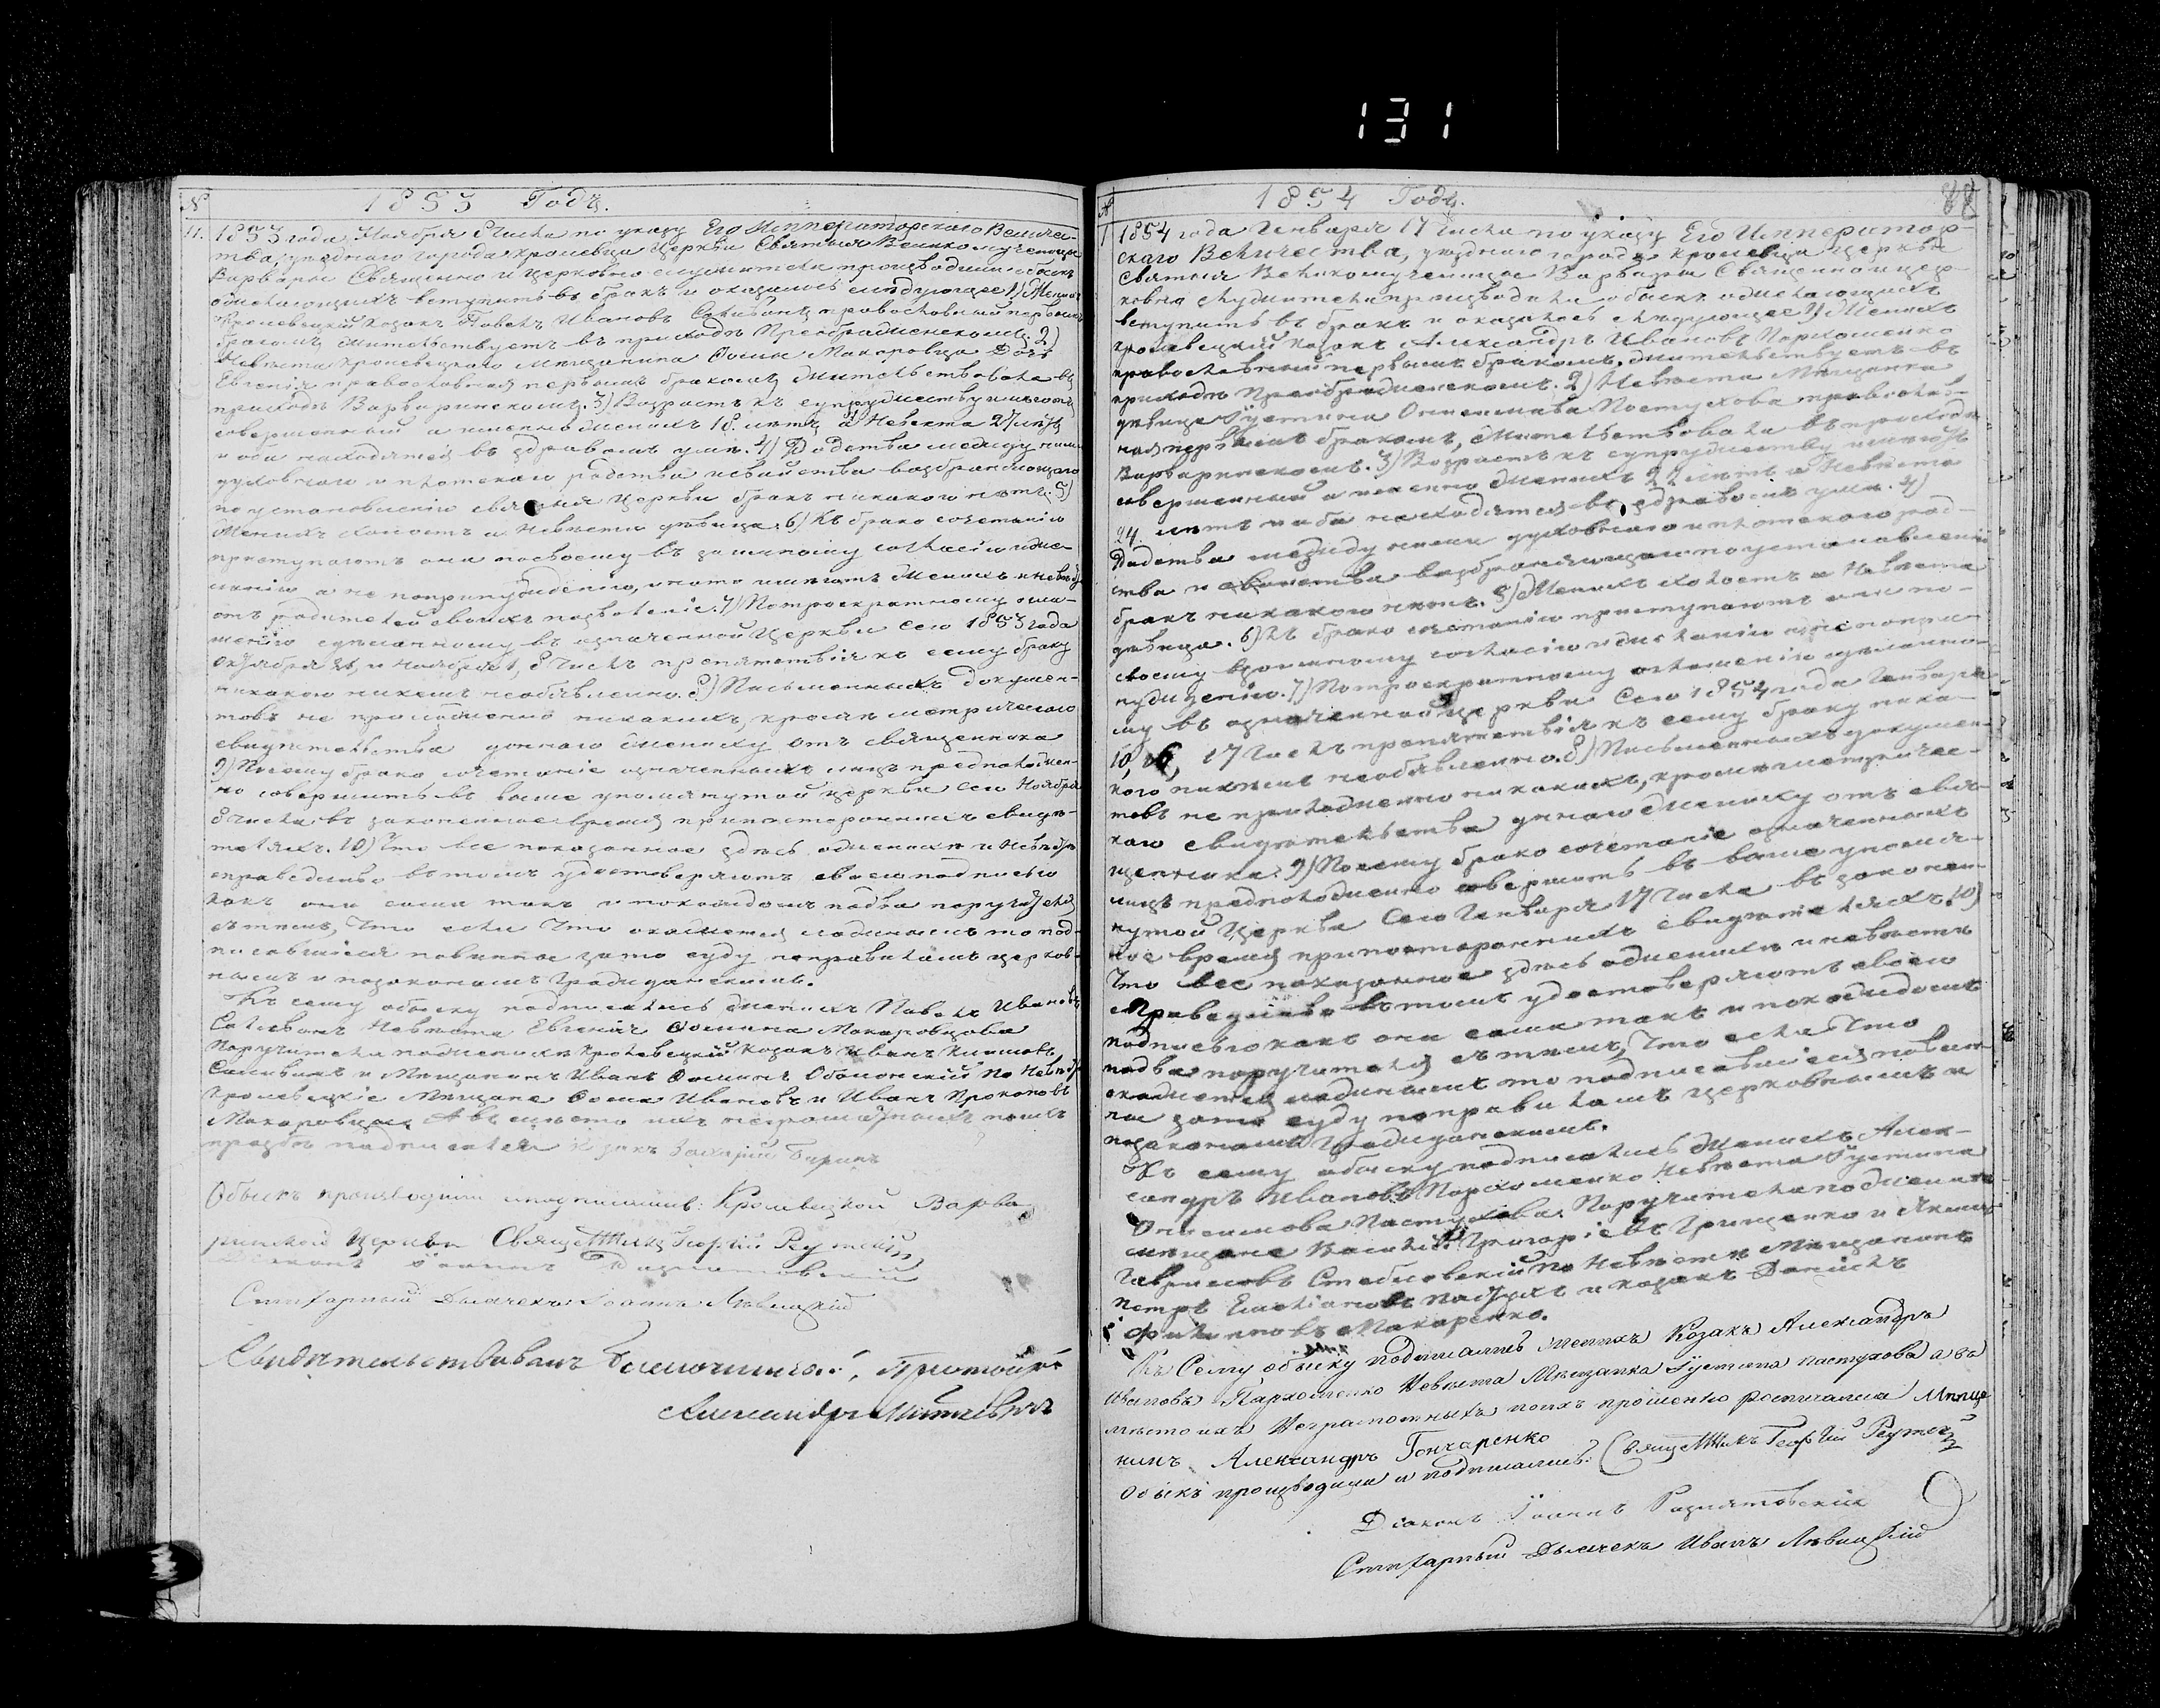 131
№ 1853 Годъ.
11. 1853 года Ноября 8 числа по указу Его Императорскаго Величес-
тва, уезднаго города Кролевца Церкви Святыя Великомученицы
Варвары Священно и церковно служители производили обыскъ
о желающихъ вступить въ бракъ и оказалось следующее 1) Женихъ
Кролевецкій Козакъ Павелъ Ивановъ православный первымъ
бракомъ жительствуетъ въ приходѣ Преображенскомъ. 2)
Невѣста Кролевецкаго мещанина Фомы Макаровца Дочь
Евгенія православная первымъ бракомъ жительствовала въ
приходѣ Варваринскомъ. 3) Возрастъ къ супружеству имѣютъ
совершенный а именно женихъ 18. лѣтъ а Невеста 21 лѣтъ
и оба находятся въ здравомъ умѣ. 4) Родства между ними
духовнаго и плотскаго родства и свойства возбраняющаго
по установленію святыя Церкви бракъ никакого нѣтъ. 5)
Женихъ холостъ а Невѣста дѣвица. 6) Къ брако сочетанію
приступаютъ они по своему въ заимному согласію и же-
ланію а не попринужденію, и на то имѣютъ женихъ и невѣста
отъ родителей своихъ позволеніе. 7) По троекратному огла-
шенію сделанному въ означенной Церкви сего 1853 года
Октября и Ноября 1, 8 числъ препятствія къ сему браку
никакого никемъ необъявленно. 8) Письменныхъ докумен-
товъ не приложенно никакихъ, кромѣ метрическаго
свидѣтельства даннаго жениху отъ священника
9) Посему брако сочетаніе означенныхъ лицъ предположен-
но совершить въ выше упомянутой церкви сего Ноября
8 числа въ законенное время при постороннихъ свидѣ-
теляхъ. 10) Что все показанное здѣсь о женихѣ и Невѣстѣ
справедливо въ томъ удостоверяютъ своею подписью
какъ они сами такъ и по каждомъ по два поручителя
съ темъ, что если что окажется ложнымъ то под-
писавшіеся повинны за то суду по правиламъ церков-
нымъ и по законамъ гражданскимъ.
Къ сему обыску подписались женихъ Павелъ Ивановъ
Невѣста Евгенія Фомина Макаровцова
Поручители по женихѣ Кролевецкій козакъ Иванъ
и Мещанинъ Иванъ Фоминъ Оболонскій По Невѣстѣ
Кролевецкіе Мещане Фома Ивановъ и Иванъ Прокоповъ
Макаровцы А вместо ихъ неграмотныхъ поихъ
прозьбѣ подписался Козакъ
Обыскъ производили и подписались: Кролевецкой Варва-
ринской Церкви Священникъ Георгій
Діаконъ Іоаннъ
Стихарный Дьячекъ Іоаннъ
Свидѣтельствовалъ Благочинный, Протоіерей
Александръ
№ 1854 Годъ. 88
1 1854 года Генваря 17 числа по указу Его Император-
скаго Величества, уезднаго города Кролевца Церкви
Святыя Великомученицы Варвары Священно и цер-
ковно служители производили обыскъ о желающихъ
вступить въ бракъ и оказалось слѣдующее 1) Женихъ
Кролевецкій козакъ Александръ Ивановъ Пархоменко
православный первымъ бракомъ, жительствуетъ въ
приходѣ Преображенскомъ. 2) Невѣста Мещанка
девица Іустина Онисимова Пастухова православ-
ная первымъ бракомъ, жительствовала въ приходѣ
Варваринскомъ. 3) Возрастъ къ супружеству имѣютъ
совершенный а именно женихъ 22 лѣтъ а Невѣста
24. лѣтъ и оба находятся въ здравомъ умѣ. 4)
Родства между ними духовнаго и плотскаго род-
ства и свойства возбраняющаго по установленію
бракъ никакого нѣтъ. 5) Женихъ холостъ а Невѣста
дѣвица. 6) Къ брако сочетанію приступаютъ они по
своему взаимному согласію и желанію а не по при-
нужденію. 7) По троекратному оглашенію сделанно-
му въ означенной церкви Сего 1854 года Генваря
10, 6, 17 числъ препятствія къ сему браку ника-
кого никемъ необъявленно. 8) Письменныхъ докумен-
товъ не приложенно никакихъ, кромѣ метричес-
каго свидѣтельства даннаго жениху отъ свя-
щенника. 9) Посему брако сочетаніе означенныхъ
лицъ предположенно совершить въ выше упомя-
нутой Церкви Сего Генваря 17 числа въ законен-
ное время при постороннихъ свидѣтеляхъ. 10)
Что все показанное здѣсь о женихѣ и невѣстѣ
справедливо въ томъ удостоверяютъ своею
подписью какъ они сами такъ и по каждомъ
по два поручителя съ темъ, что если что
окажется ложнымъ то подписавшіеся повин-
ны за то суду по правиламъ церковнымъ и
по законамъ Гражданскимъ.
Къ сему обыску подписались Женихъ Алек-
сандръ Ивановъ Пархоменко Невѣста Іустина
Онисимова Пастухова. Поручители по женихѣ
мещане Василій Григоріевъ Грищенко и
Гавриловъ Стебловскій По Невѣстѣ Мещанинъ
Петръ и козакъ Даніилъ
Филиповъ Макаренко.
Къ Сему обыску подписались женихъ Козакъ Александръ
Ивановъ Пархоменко Невѣста Мѣщанка Іустина пастухова а въ
мѣсто ихъ Неграмотныхъ поихъ прошенію росписался Мѣща-
нинъ Александръ Гончаренко
Обыскъ производили и подписались: Священникъ Георгій
Діаконъ Іоаннъ
Стихарный Дьячекъ Иванъ